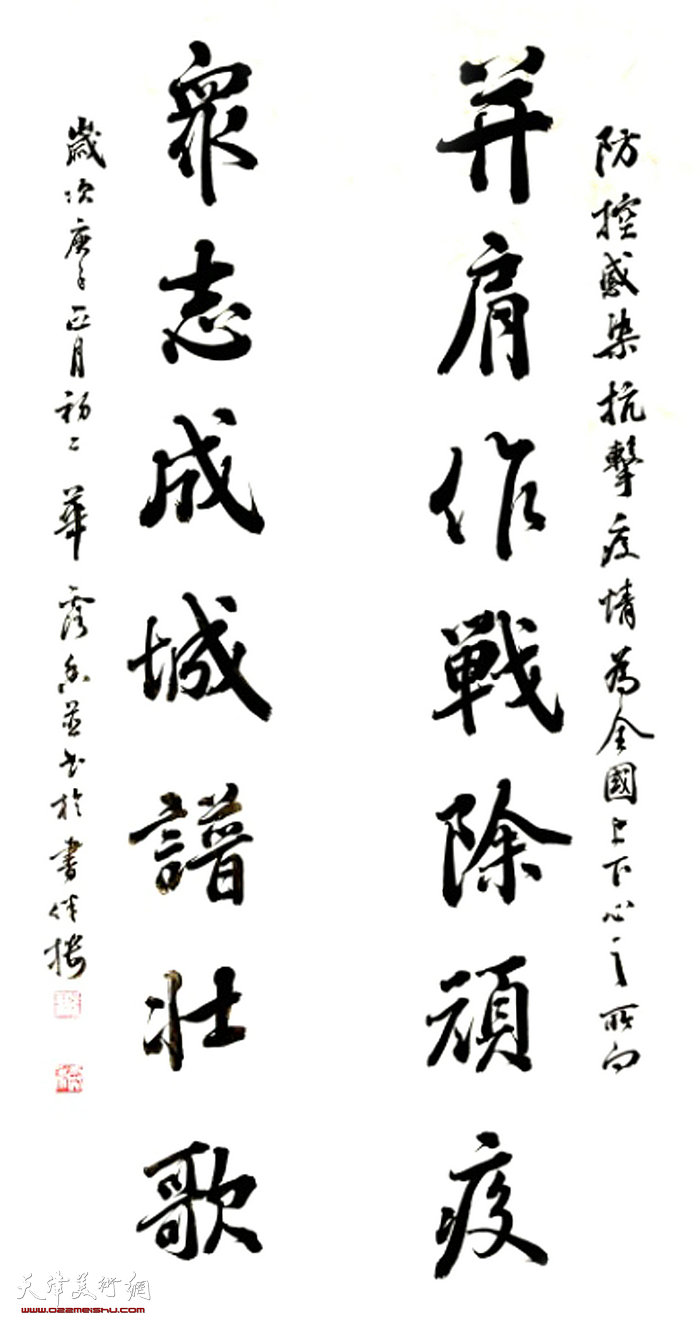 防控感染抗擊疫情為全國上下心之所向
并肩作戰除頑疫
眾志成城譜壯歌
歲次庚子正月初二 華露 並書於書侔樓
天津美術網
www.022meishu.com